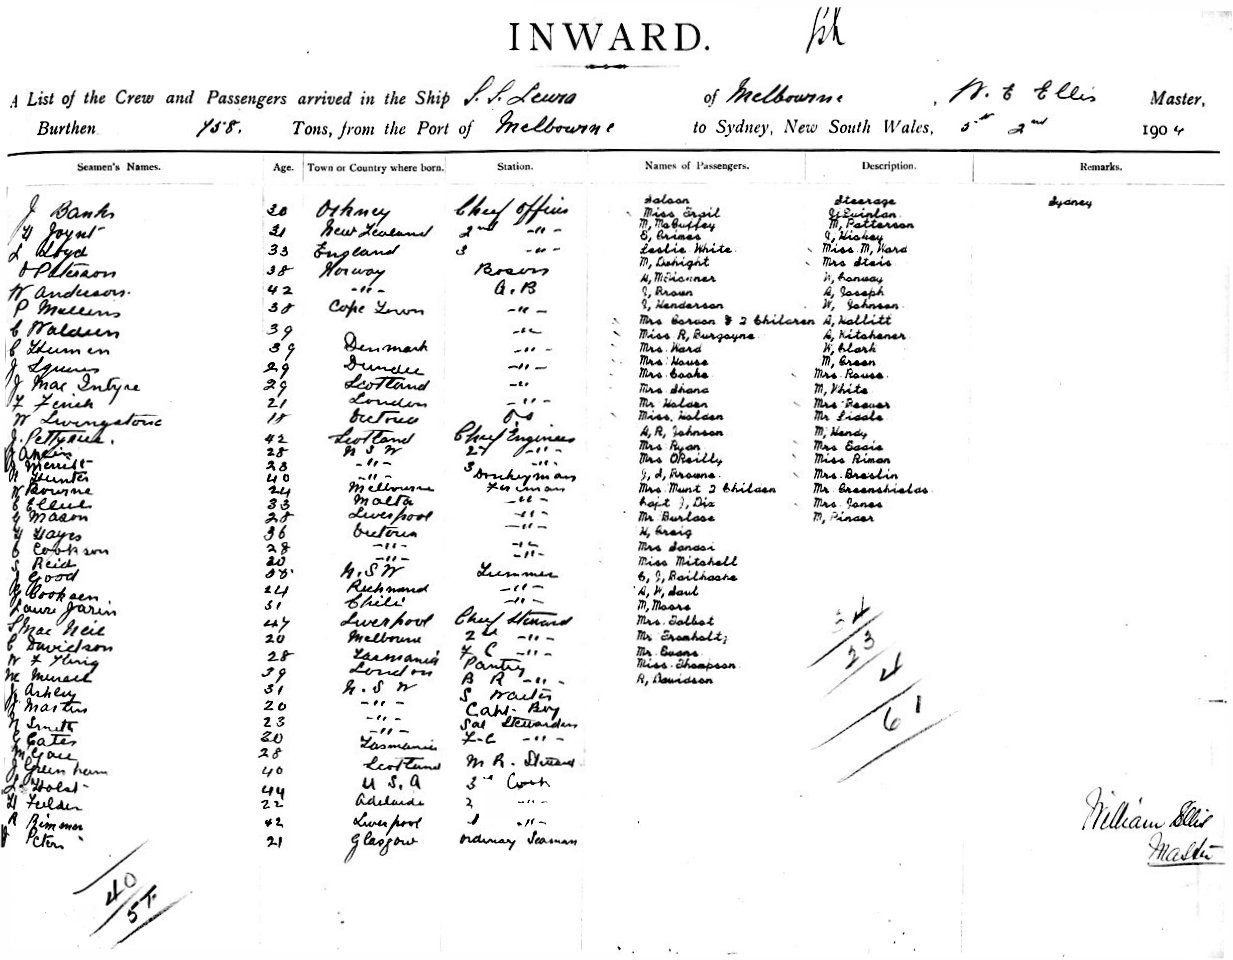 INWARD.
A List of the Crew and Passengers arrived in the Ship S.S. of Melbourne, W. E Ellis Master,
Burthen 758. Tons, from the Port of Melbourne to Sydney, New South Wales, 5th 2nd 1904
Seamen's Names. Age. Town or Country where born. Station. Names of Passengers. Description. Remarks.
Saloon Steerage Sydney
J Banks 30 Orkney Chief Officer Miss Grail J, Quinlan
H Joynt 31 New Zealand 2nd -"- M, McGuffey M, Patterson
L Lloyd 33 England 3 -"- E, Grimes J, Hickey
Leslie White Miss M, Ward
O Paterson 38 Norway Bosun M, Dwight Mrs Steis
W Anderson 42 -"- A.B A, Conway
P 38 Cape Town -"- J, Brown A, Joseph
J, Henderson W, Johnson
C Waldsen 39 -"- Mrs Corson & 2 Children A, Hallitt
Miss R, Burgoyne A, Kitchener
C 39 Denmark -"- Mrs Ward W, Clark
J Squires 29 Dundee -"- Mrs House M, Green
J Mac Intyre 29 Scotland -"- Mrs Cooke Mrs Rouse
Mrs Shand M, White
F Finch 21 London -"- Mr Holden Mrs Beaver
W Livingstone 18 Victoria Miss Holden Mr Liddle
J. Pettigrew. 42 Scotland Chief Engineer A, R, Johnson M, Hendy
28 N S W 2d -"- Mrs Ryan Mrs Eddie
J Merritt 23 -"- 3 -"- Mrs OReilly Miss Riman
Hunter 40 -"- Donkeyman J, S, Browne Mrs Breslin
W Bourne 24 Melbourne Fireman Mrs Munt 2 Children Mr Greenshields
33 Malta -"- Capt J, Dix Mrs Jones
G Mason 28 Liverpool -"- Mr Burlase M, Pinder
H Hayes 36 Victoria -"- H, Greig
C Cookson 28 -"- -"- Mrs Sandsi
S Reid 30 -"- -"- Miss Mitchell
J Good N.S W Trimmer C, J, Railhashe
Cooksen 24 Richmond -"- A, W, Saul
31 Chili -"- M, Moore
S Mac Neil 47 Liverpool Chief Steward Mrs Talbot
C Davidson 20 Melbourne 2nd -"- Mr Bromholtz
W F 28 Tasmania F C -"- Mr Evans
39 London Pantry Miss Thompson
J Ashley 31 N. S W B R -"- R, Davidson
Masters 20 -"- S Waiter
N Smith 23 -"- Capt- Boy
C Gates 30 -"- Sal Stewardess
28 Tasmania F-C -"-
J Greenham 40 Scotland M R. Steward
Holst 44 U S. A 3rd Cook
H Fielder 22 Adelaide 2 -"-
R Rimmer 42 Liverpool -"-
Peters 21 Glasgow Ordinary Seaman
23
61
William Ellis
Master
40